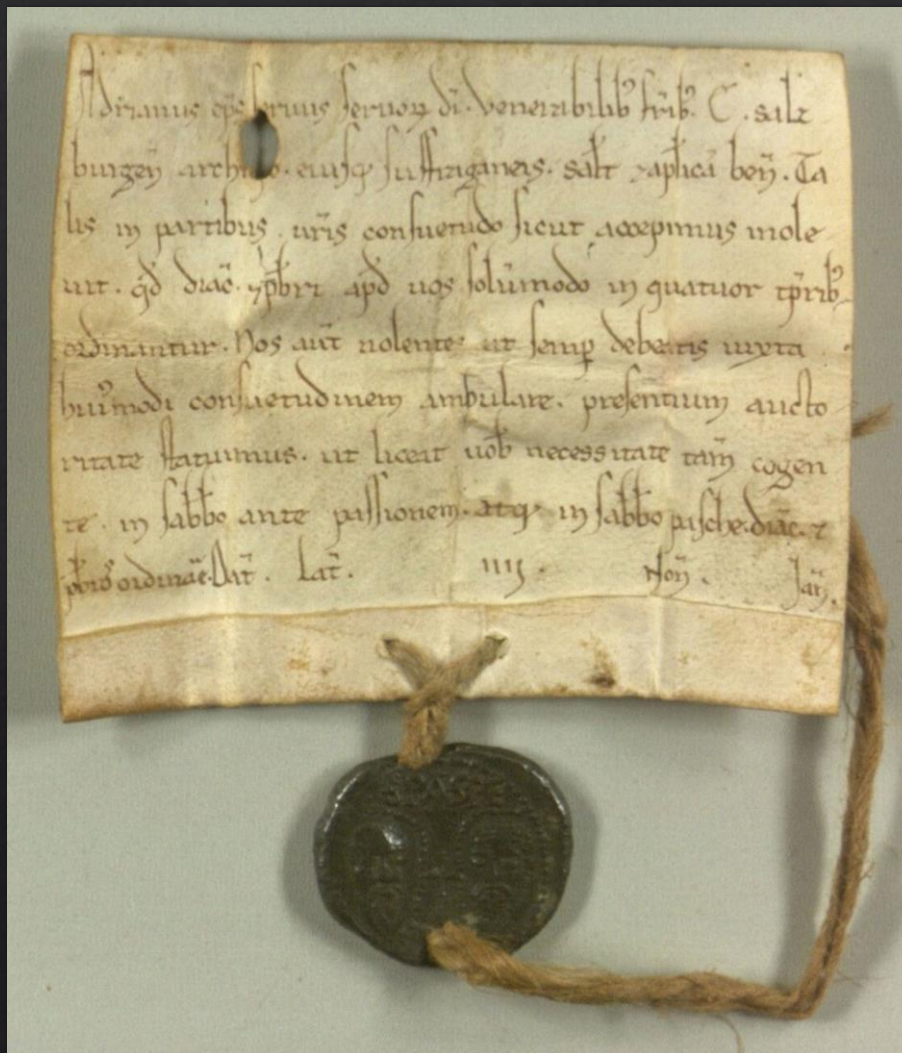 Adrianus ep̄s seruus seruoꝝ dī. Venerabilib᷒ fr̄ib᷒. C. salz
burgeñ archiep̄o. eiusq; suffraganeis. sal̄t ⁊ ap̄licā beñ. Ta
lis in partibus. ur̄is consuetudo sicut accepimus inole
uit. qd̄ diac̄. ⁊ p̄bri apd̄ uos solūmodo in quatuor tp̄rib᷒
ordinantur. Nos aūt nolentes ut semp̱ debeatis iuxta
hui᷒modi consuetudinem ambulare. presentium aucto
ritate statuimus. ut liceat uob̄ necessitate tam̄ cogen
te. in sabb̄o ante passionem. atq; in sabb̄o pasche. diac̄. ⁊
p̄bros ordinare. Dat̄. Lat̄. iiij. Noñ. Jañ.
SPASPE